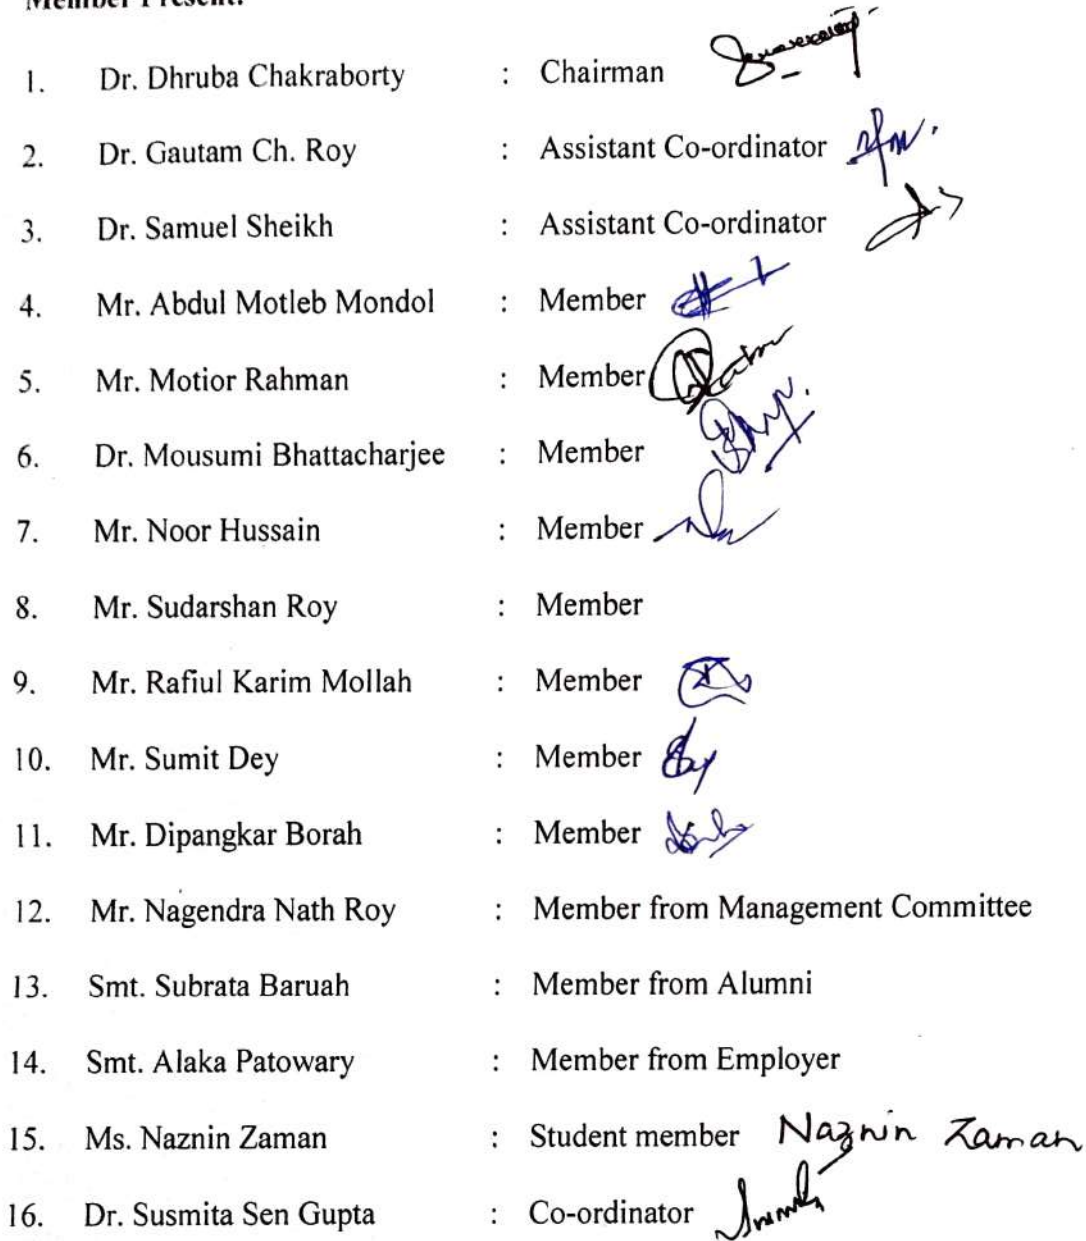 Member Present:
1. Dr. Dhruba Chakraborty : Chairman
2. Dr. Gautam Ch. Roy : Assistant Co-ordinator
3. Dr. Samuel Sheikh : Assistant Co-ordinator
4. Mr. Abdul Motleb Mondol : Member
5. Mr. Motior Rahman : Member
6. Dr. Mousumi Bhattacharjee : Member
7. Mr. Noor Hussain : Member
8. Mr. Sudarshan Roy : Member
9. Mr. Rafiul Karim Mollah : Member
10. Mr. Sumit Dey : Member
11. Mr. Dipangkar Borah : Member
12. Mr. Nagendra Nath Roy : Member from Management Committee
13. Smt. Subrata Baruah : Member from Alumni
14. Smt. Alaka Patowary : Member from Employer
15. Ms. Naznin Zaman : Student member Naznin Zaman
16. Dr. Susmita Sen Gupta : Co-ordinator